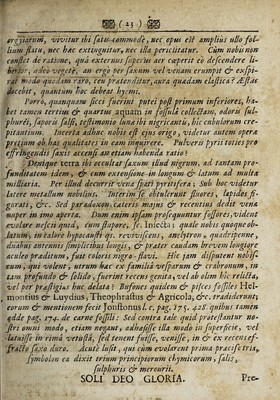 ( 23 )
orgiiarum, vivitur ibi satis commodè, nec opus est amplius ullo fol-
lium flatu, nec hæc extinguitur, nec illa periclitatur. Cùm nobis non
constet de ratione, quâ externus superus aer cœperit eò descendere li-
berior, adeò vegetè, an ergò per saxum vel venam erumpit & exspi-
rat modo quodam raro, ceu prætenditur, aura quadam elastica? Æstas
docebit, quantum hoc debeat hyemi.
Porrò, quanquam sicci fuerint putei post primum inferiores, ha-
bet tamen tertius & quartus aquam in fossulâ collectam, odoris sul-
phurei, saporis salsi, restissimo unguibi nepetuntii, hic cupulorum cre-
pitantium. Incerta adhuc nobis est ejus origo, videtur autem opera
pretium ob has qualitates in eam inquirere. Pulveris pyrii toties pro
effringendis saxis accensi an etiam habenda ratio?
Denique terra ibi occultat saxum illud nigrum, ad tantam pro-
funditatem idem, & cum extensione in longum & latum ad multa
milliaria. Per illud decurrit vena fissæ pyritifera; sub hoc videtur
latere metallum nobilius. Interim se obtulerunt fluores, lapides fi-
gurati, &c. Sed paradoxon cæteris majus & recentius dedit vena
nuper in imo aperta. Dum enim ipsam prosequuntur fossores, vident
evolare nescii quid, cum stupore, se Insecta; quale nobis quoque ob-
latum, in calore hypocausti qs. reviviscens, amplexum, quadripenne,
duabus antennis simplicibus longis, & præter caudam brevem longiore
aculeo præditum, fuit coloris nigro-flavi. Hic jam disputet nobis-
cum, qui volent, utrùm hæc ex familia vesparum & crabronum, in
tam profundo & solido, fuerint recens genita, vel ab olim hic relicta,
vel per præstigias huc delata? Bufones quidem & pisces fossiles Hel-
montius & Luydius, Theophrastus & Agricola, &c. tradiderunt,
eorum & mentionem fecit Jonstonus l. c. pag. 175. 428. quibus tamen
adde pag. 174. de carne fossili: Sed contra tale quid protestantur no-
stri omni modo, etiam negant, adhæsisse illa modo in superficie, vel
latuisse in rimâ vetustâ, sed tenent fuisse, venisse, in & ex recens ef-
fracto saxo duro. Acute lusit, qui cùm evolarent prima præcise tria,
symbolon ea dixit trium principiorum chymicorum, salis,
sulphuris & mercurii.
SOLI DEO GLORIA.
Præ-